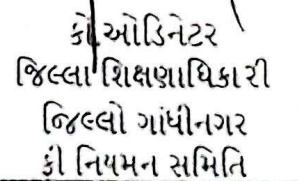 કો.ઓડિનેટર
જિલ્લા શિક્ષણાધિકારી
જિલ્લો ગાંધીનગર
ફી નિયમન સમિતિ